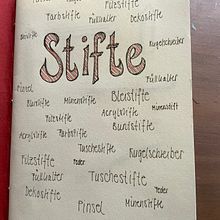 Farbstifte Füllhalter Dekostifte
Filzstifte
Bleistifte Kugelschreiber
Stifte
Füllhalter
Pinsel
Buntstifte Minenstifte Bleistifte Minenstift
Filzstifte Acrylstifte
Acrylstifte Farbstifte Buntstifte
Tuschestifte Kugelschreiber
Filzstifte Feder
Füllhalter Tuschestifte
Dekostifte Feder
Pinsel Minenstifte